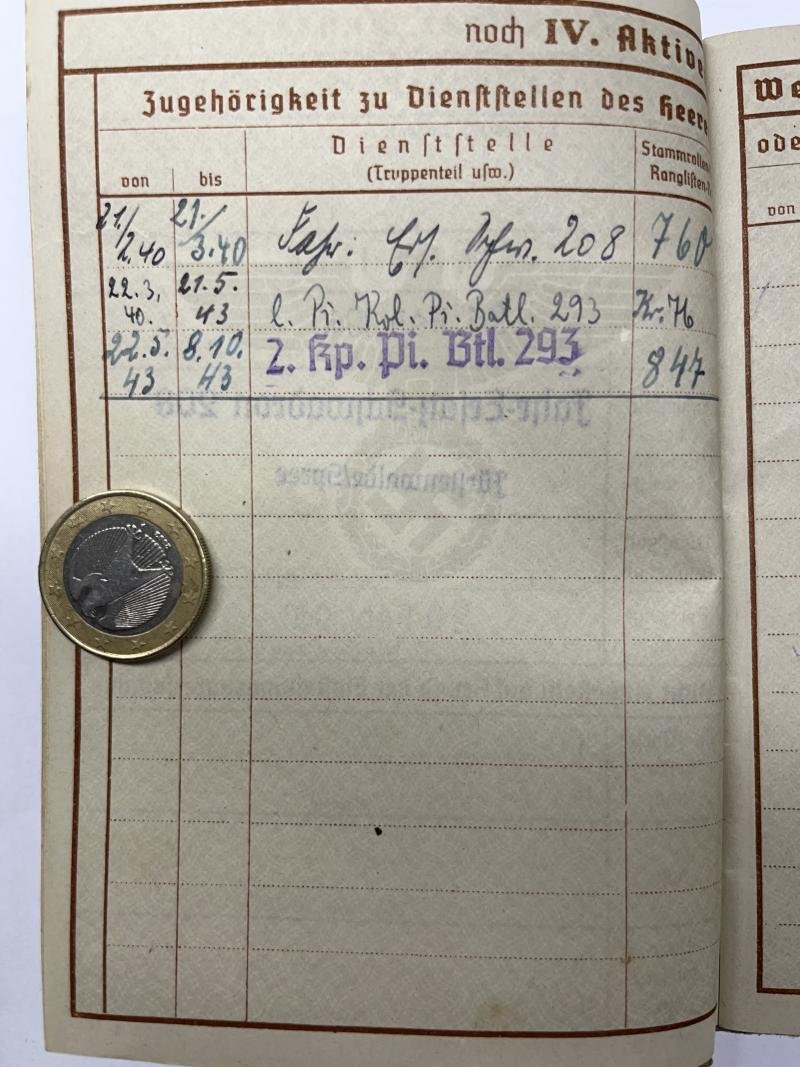 noch IV. Aktive
Zugehörigkeit zu Dienststellen des Heere
von bis Dienststelle (Truppenteil usw.) Stammrollen- Ranglisten-
21./2.40 21./3.40 Fahr. Ers. Schw. 208 760
22.3.40. 21.5.43 l. Pi. Kol. Pi. Batl. 293 Kr. 76
22.5.43 8.10.43 2. Kp. Pi. Btl. 293 847
Fahr-Ersatz-Schwadron 208
Fürstenwalde/Spree
We
ode
von